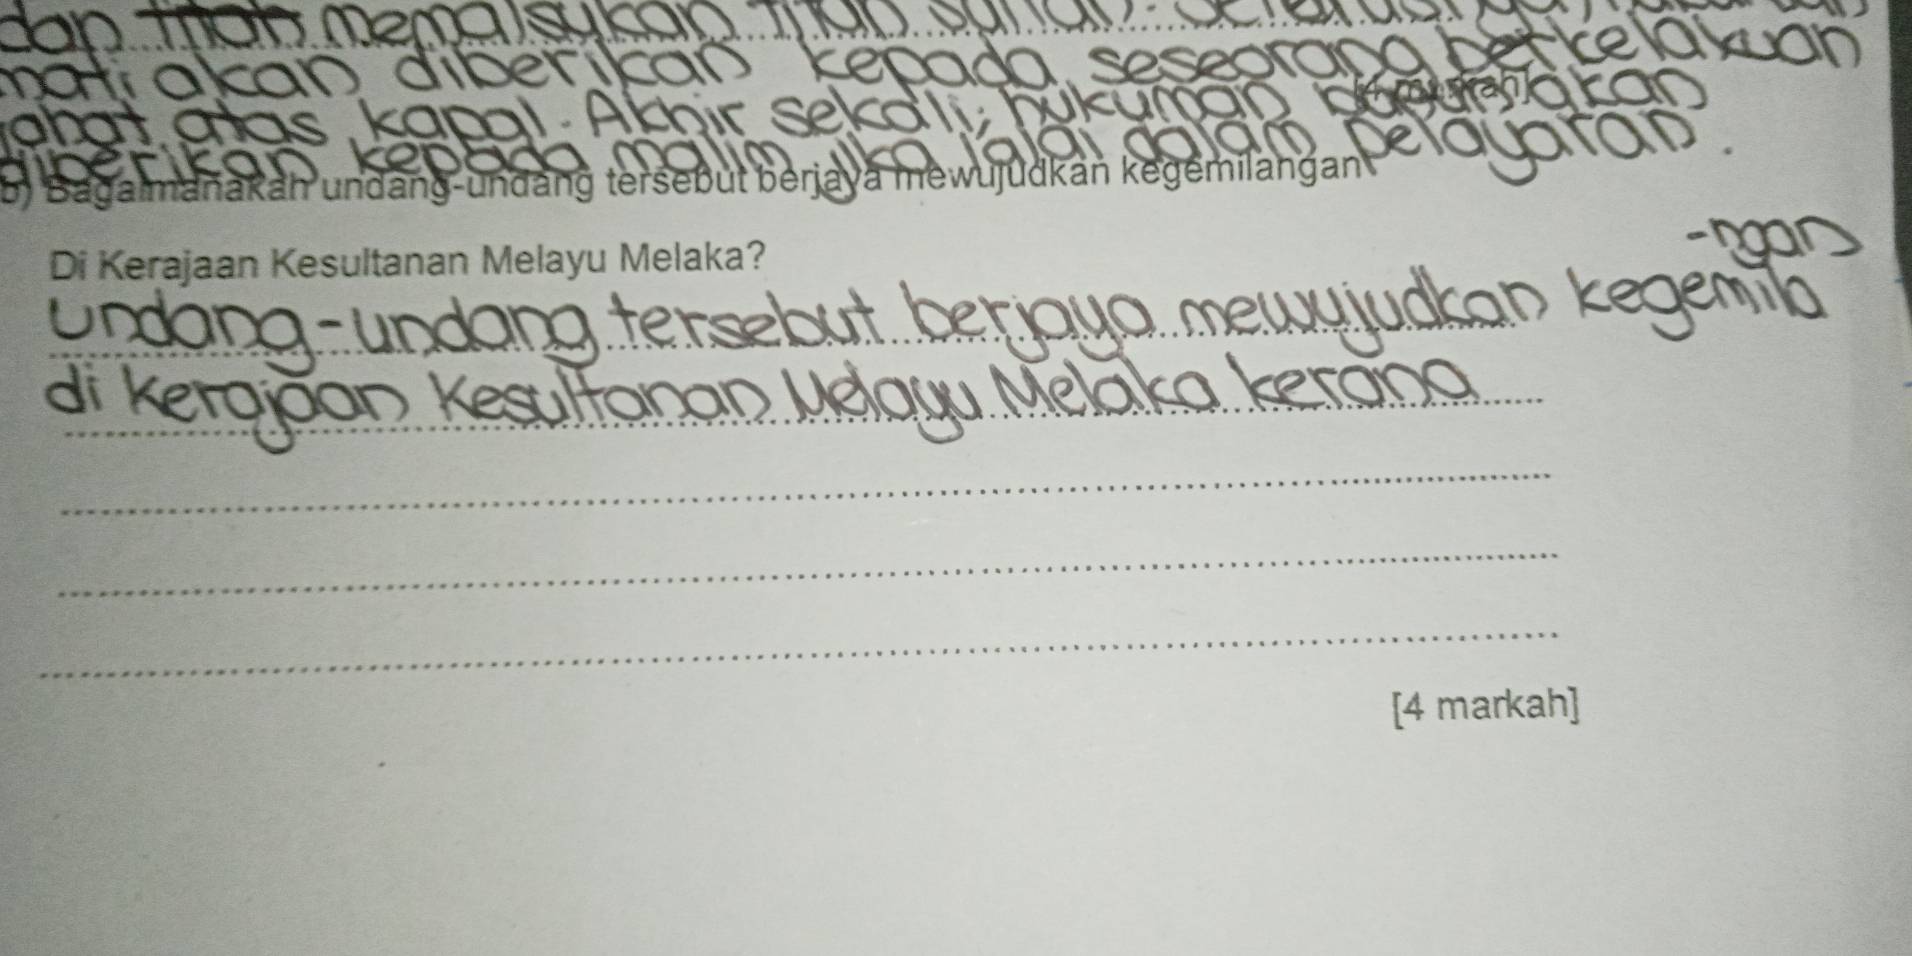 dan titah memalsukan titah sultan.
mati akan diberikan kepada seseorang berkelakuan
jahat atas kapal. Akhir sekali, hukuman akan
diberikan kepada malim jika lalai dalam pelayaran.
b) Bagaimanakah undang-undang tersebut berjaya mewujudkan kegemilangan
Di Kerajaan Kesultanan Melayu Melaka?
-ngan
Undang-undang tersebut berjaya mewujudkan kegemila
di Kerajaan Kesultanan Melayu Melaka kerana
[4 markah]